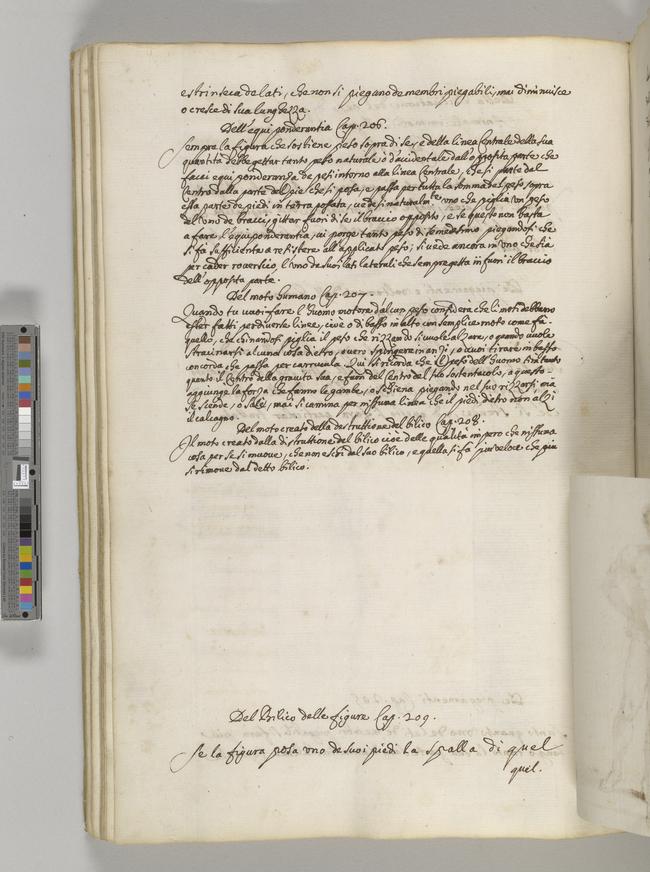 estrinseca de lati, che non si piegano de membri piegabili, mai diminuisce
o cresce di sua lunghezza.
Dell'equiponderantia Cap. 206.
Sempre la figura che sostiene peso sopra di se, e della linea Centrale della sua
quantità debbe gettar tanto peso naturale ò d'accidentale dall'opposita parte che
facci equiponderanza de pesi intorno alla linea Centrale, che si parte dal
Centro dalla parte del pie che si posa, e passa per tutta la somma del peso sopra
essa parte de piedi in terra posata, vedesi naturalm.te uno che piglia un peso
del'uno de bracci, gittar fuori di se il braccio opposito, e se questo non basta
a fare l'equiponderantia, vi porge tanto peso di se medesimo piegandosi che
si fa sufficiente a resistere all'applicato peso, si vede ancora in uno che sia
per cader roverscio, l'uno de suoi lati laterali che sempre getta in fuori il braccio
dell'opposita parte.
Del moto humano Cap. 207.
Quando tu vuoi fare l'huomo motore d'alcun peso considera che li moti debbano
esser fatti per diverse linee, cioè o di basso in alto con semplice moto come fa
quello, che chinandosi piglia il peso che rizzando si vuole alzare, o quando vuole
strascinarsi alcuna cosa dietro, o vero spingere inanzi, o vuoi tirare in basso
con corda che passa per carrucula. Qui si ricorda che il peso dell'huomo tira tanto
quanto il Centro della gravità sua, e fuori del Centro del suo sostentacolo, a questo
aggiunge la forza che fanno le gambe, o schiena piegando nel suo rizzarsi mai
si scende, o sale, mai si camina per nissuna linea che il piedi dietro non alzi
il calcagno.
Del moto creato della destruttione del bilico Cap. 208.
Il moto creato dalla distruttione del bilico cioè delle qualità impero che nissuna
cosa per se si muove, che non eschi dal suo bilico, e quella si fa piu veloce che piu
si rimove dal detto bilico.
Del Bilico delle figure Cap. 209.
Se la figura posa uno de suoi piedi la spalla di quel
quel.